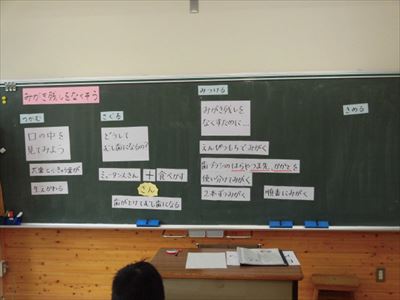 みがき残しをなくそう
つかむ
口の中を
見てみよう
六歳
生えかわる
さぐる
どうして
むし歯になるの?
ミュータンスきん
+
食べかす
さん
歯がとけてむし歯になる
みつける
みがき残しを
なくすために…
えんぴつもちでみがく
歯ブラシのはらやつま先、かかとを
使い分けてみがく
2本ずつみがく
順番にみがく
きめる